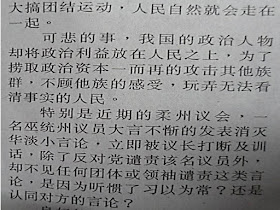 大搞团结运动，人民自然就会走在
一起。
可悲的事，我国的政治人物
却将政治利益放在人民之上，为了
捞取政治资本一而再的攻击其他族
群，不顾他族的感受，玩弄无法看
清事实的人民。
特别是近期的柔州议会，一
名巫统州议员大言不惭的发表消灭
华淡小言论，立即被议长打断及训
话，除了反对党谴责该名议员外，
却不见任何团体或领袖谴责这类言
论，是因为听惯了习以为常？还是
认同对方的言论？